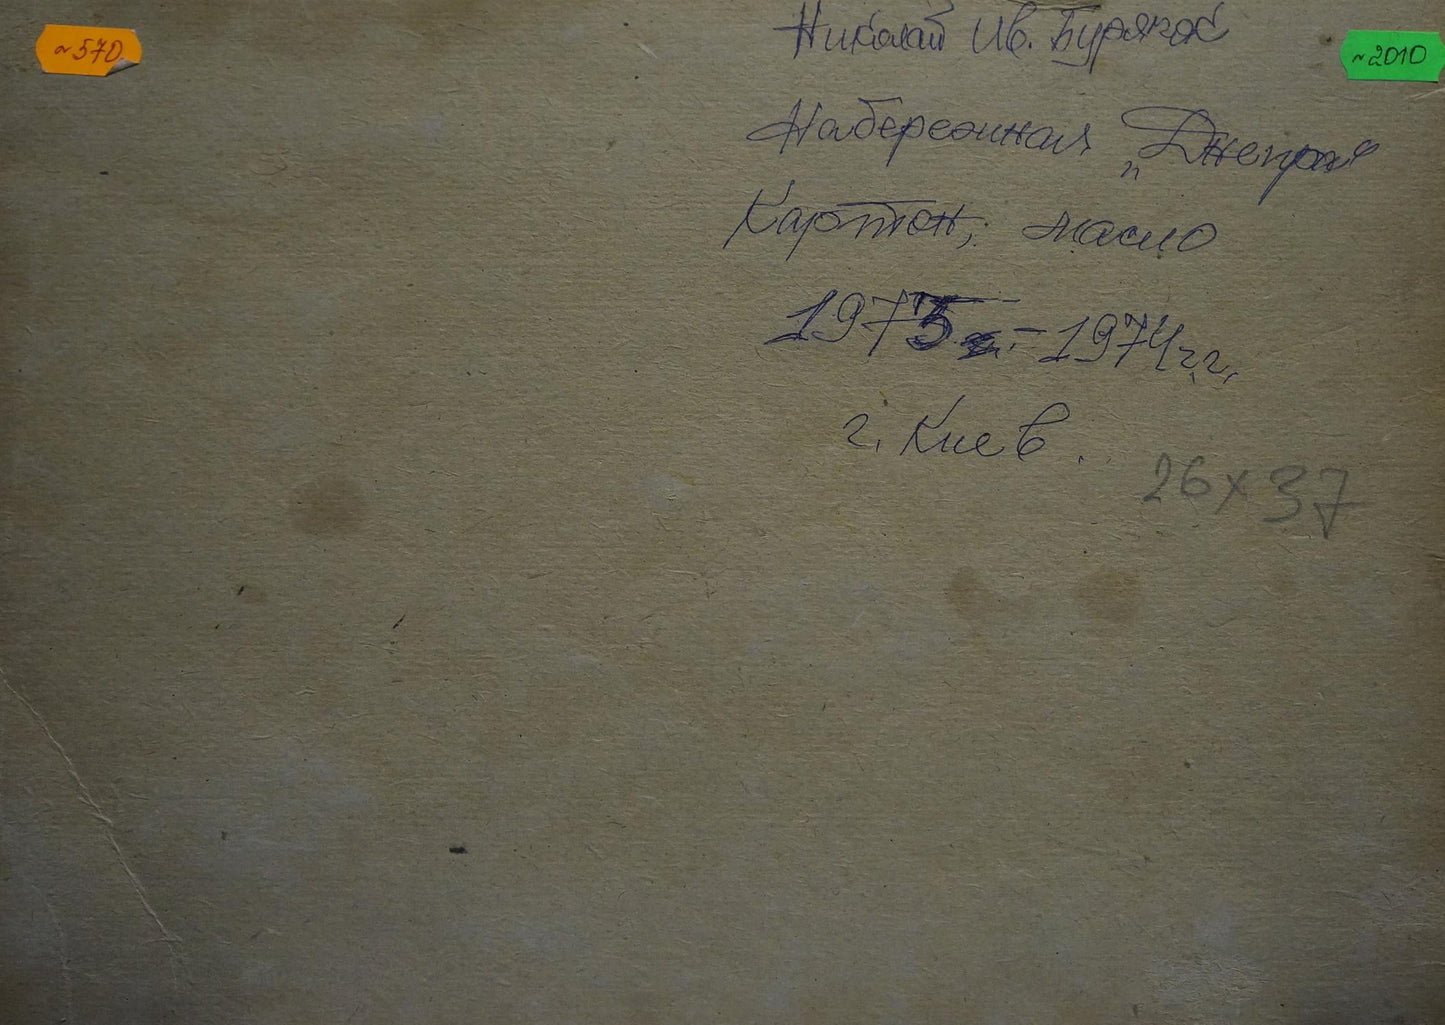 ~570
Николай Ив. Бурячок
~2010
Набережная „Днепра"
Картон, масло
1973 - 1974 г.г.
г. Киев.
26х37